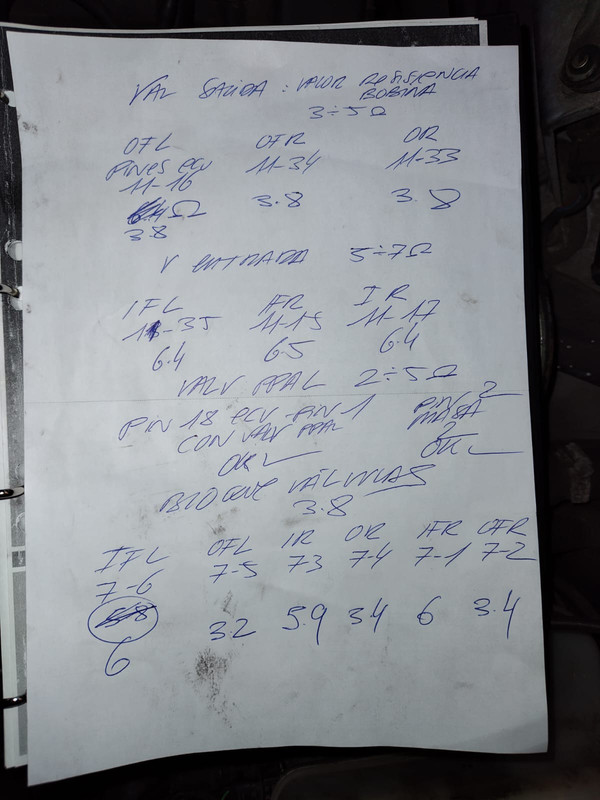 VAL SALIDA : VALOR RESISTENCIA
BOBINA
3÷5Ω
OFL OFR OR
PINES ECU 11-34 11-33
11-16
Ω 3.8 3.8
3.8
V ENTRADA 5÷7Ω
IFL IFR IR
11-35 11-15 11-17
6.4 6.5 6.4
VALV PPAL 2÷5Ω
PIN 18 ECU -PIN 1 PIN 2
CON VALV PPAL MASA
OK OK
BLOQUE VÁLVULAS
3.8
IFL OFL IR OR IFR OFR
7-6 7-5 7-3 7-4 7-1 7-2
3.2 5.9 3.4 6 3.4
6